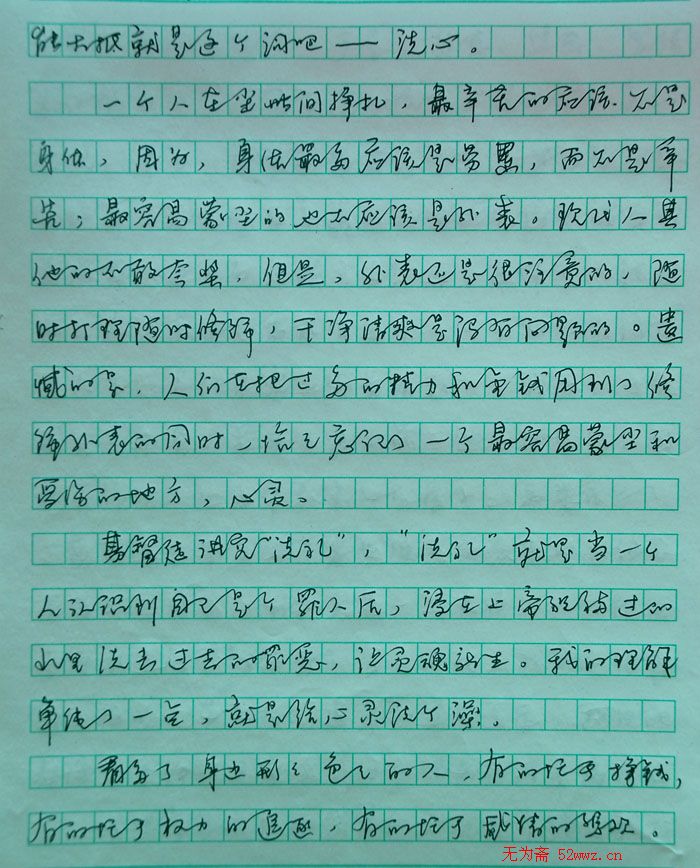 大抵就是这个词吧——洗心。
一个人在尘世间挣扎，最辛苦的应该不是
身体，因为，身体最多应该是劳累，而不是辛
苦；最容易蒙尘的也不应该是外表。现代人其
他的不敢夸奖，但是，外表还是很注意的，随
时打理随时修饰，干净清爽是没有问题的。遗
憾的是，人们在把过多的精力和金钱用到了修
饰外表的同时，恰恰忘记了一个最容易蒙尘和
的地方，心灵。
基督徒讲究“洗礼”，“洗礼”就是当一个
人认识到自己是个罪人后，浸在上帝祝福过的
水里洗去过去的罪恶，让灵魂新生。我的理解
单纯了一点，就是给心灵洗个澡。
看多了身边形形色色的人，有的忙于挣钱，
有的忙于权力的追逐，有的忙于感情的。
无为斋 52wwz.cn